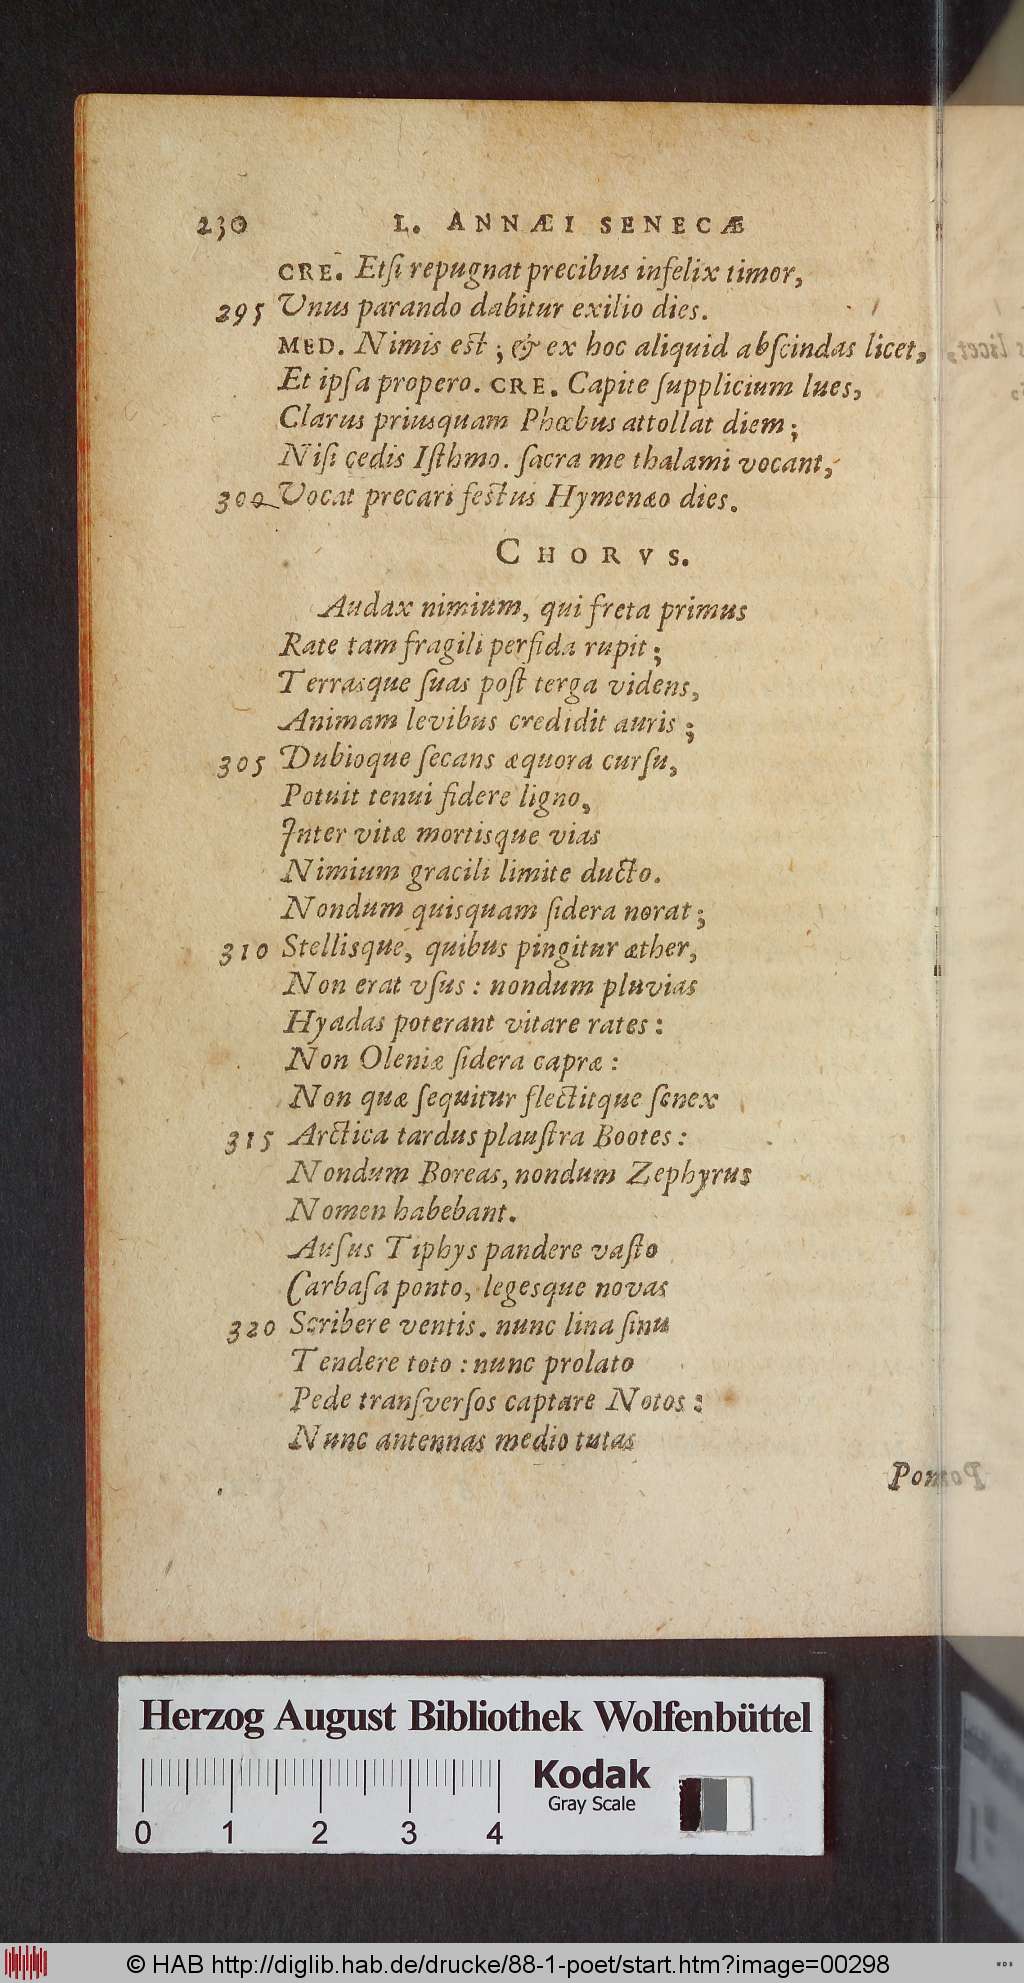 230 L. ANNÆI SENECÆ
CRE. Etſi repugnat precibus infelix timor,
295 Unus parando dabitur exilio dies.
MED. Nimis est; & ex hoc aliquid abſcindas licet,
Et ipſa propero. CRE. Capite ſupplicium lues,
Clarus priusquam Phœbus attollat diem;
Niſi cedis Iſthmo. ſacra me thalami vocant,
300 Vocat precari festus Hymenæo dies.
CHORVS.
Audax nimium, qui freta primus
Rate tam fragili perfida rupit;
Terrasque ſuas poſt terga videns,
Animam levibus credidit auris;
305 Dubioque ſecans æquora curſu,
Potuit tenui fidere ligno,
Inter vitæ mortisque vias
Nimium gracili limite ducto.
Nondum quisquam ſidera norat;
310 Stellisque, quibus pingitur æther,
Non erat vſus: nondum pluvias
Hyadas poterant vitare rates:
Non Oleniæ ſidera capræ:
Non quæ ſequitur flectitque ſenex
315 Arctica tardus plauſtra Bootes:
Nondum Boreas, nondum Zephyrus
Nomen habebant.
Auſus Tiphys pandere vaſto
Carbaſa ponto, legesque novas
320 Scribere ventis. nunc lina ſinu
Tendere toto: nunc prolato
Pede tranſverſos captare Notos:
Nunc antennas medio tutas
Herzog August Bibliothek Wolfenbüttel
Kodak
Gray Scale
0 1 2 3 4
© HAB http://diglib.hab.de/drucke/88-1-poet/start.htm?image=00298